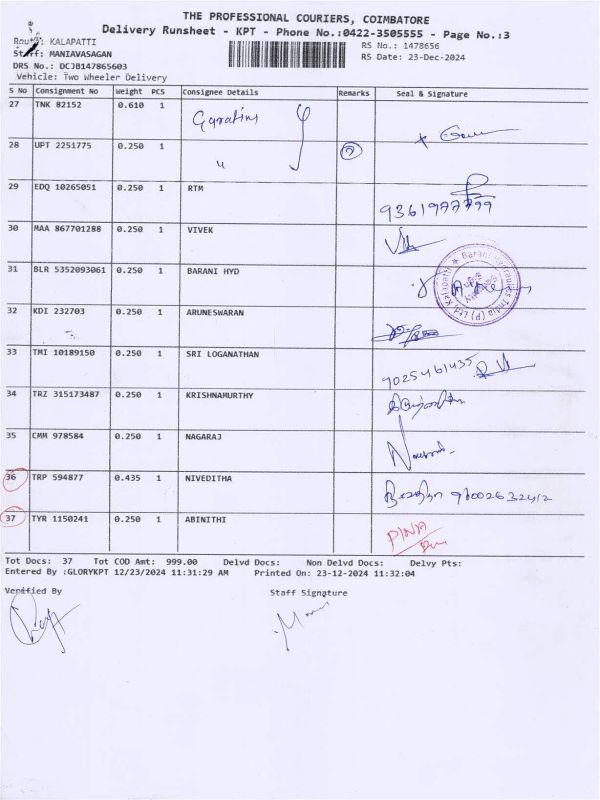 THE PROFESSIONAL COURIERS, COIMBATORE
Delivery Runsheet - KPT - Phone No.:0422-3505555 - Page No.:3
Route: KALAPATTI
RS No.: 1478656
Staff: MANIAVASAGAN
RS Date: 23-Dec-2024
DRS No.: DCJB147865603
Vehicle: Two Wheeler Delivery
S No Consignment No Weight PCS Consignee Details Remarks Seal & Signature
27 TNK 82152 0.610 1
28 UPT 2251775 0.250 1 "
29 EDQ 10265051 0.250 1 RTM
9361977799
30 MAA 867701288 0.250 1 VIVEK
31 BLR 5352093061 0.250 1 BARANI HYD
Barani Hydraulics India (P) Ltd. Kalapatti
32 KDI 232703 0.250 1 ARUNESWARAN
33 TMI 10189150 0.250 1 SRI LOGANATHAN
9025461435
34 TRZ 315173487 0.250 1 KRISHNAMURTHY
35 CMM 978584 0.250 1 NAGARAJ
36 TRP 594877 0.435 1 NIVEDITHA
37 TYR 1150241 0.250 1 ABINITHI
Tot Docs: 37 Tot COD Amt: 999.00 Delvd Docs: Non Delvd Docs: Delvy Pts:
Entered By :GLORYKPT 12/23/2024 11:31:29 AM Printed On: 23-12-2024 11:32:04
Verified By Staff Signature